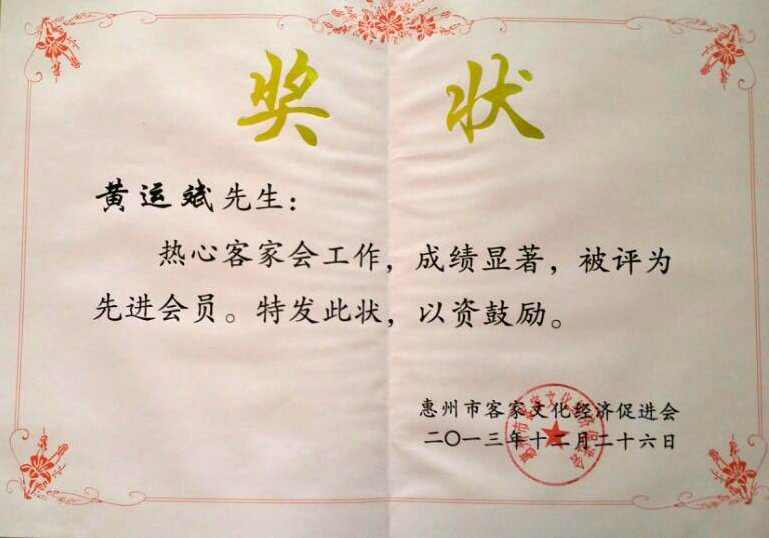 奖状
黄运斌先生：
热心客家会工作，成绩显著，被评为
先进会员。特发此状，以资鼓励。
惠州市客家文化经济促进会
二〇一三年十二月二十六日
惠州市客家文化经济促进会